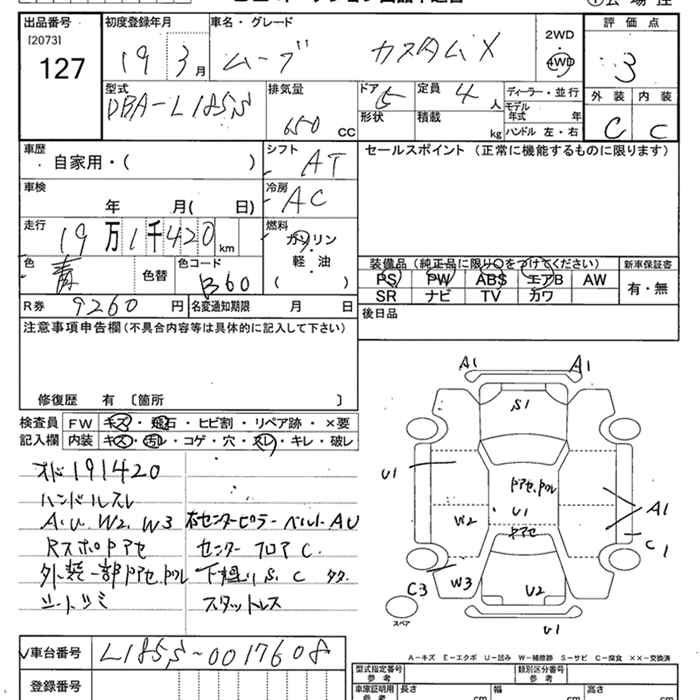 出品番号
[2073]
127
初度登録年月
19 3 月
車名・グレード
ムーブ カスタムX
2WD
4WD
評価点
3
外装 内装
C C
型式
DBA-L185S
排気量
650 CC
ドア 5
形状
定員 4 人
積載 kg
ディーラー・並行
モデル年式 年
ハンドル 左・右
車歴
自家用・( )
シフト
AT
セールスポイント (正常に機能するものに限ります)
車検
年 月( 日)
冷房
AC
走行
19万1千420 km
燃料
ガソリン
軽・油
( )
色
青
色替
色コード
B60
装備品 (純正品に限り○をつけてください)
PS PW ABS エアB AW
SR ナビ TV カワ
新車保証書
有・無
R券 9260 円
名変通知期限 月 日
後日品
注意事項申告欄 (不具合内容等は具体的に記入して下さい)
修復歴 有 〔箇所 〕
検査員記入欄
FW キズ・飛石・ヒビ割・リペア跡・×要
内装 キズ・汚レ・コゲ・穴・スレ・キレ・破レ
オド191420
ハンドルスレ
A.U. W2. W3 右センターピラーベルトAU
RスポロPアセ センターフロアC.
外装一部Pアセ.Pワレ 下廻りS. C タタ.
シートシミ スタットレス
A1 A1
S1
U1
Pアセ.Pワレ
U1
Pアセ
W2
A1
C1
C3 W3 U2
U1
スペア
A-キズ E-エクボ U-凹み W-補修跡 S-サビ C-腐食 ××-交換済
車台番号 L185S-0017608
登録番号
型式指定番号 類別区分番号
車庫証明用参考 長さ cm 幅 cm 高さ cm